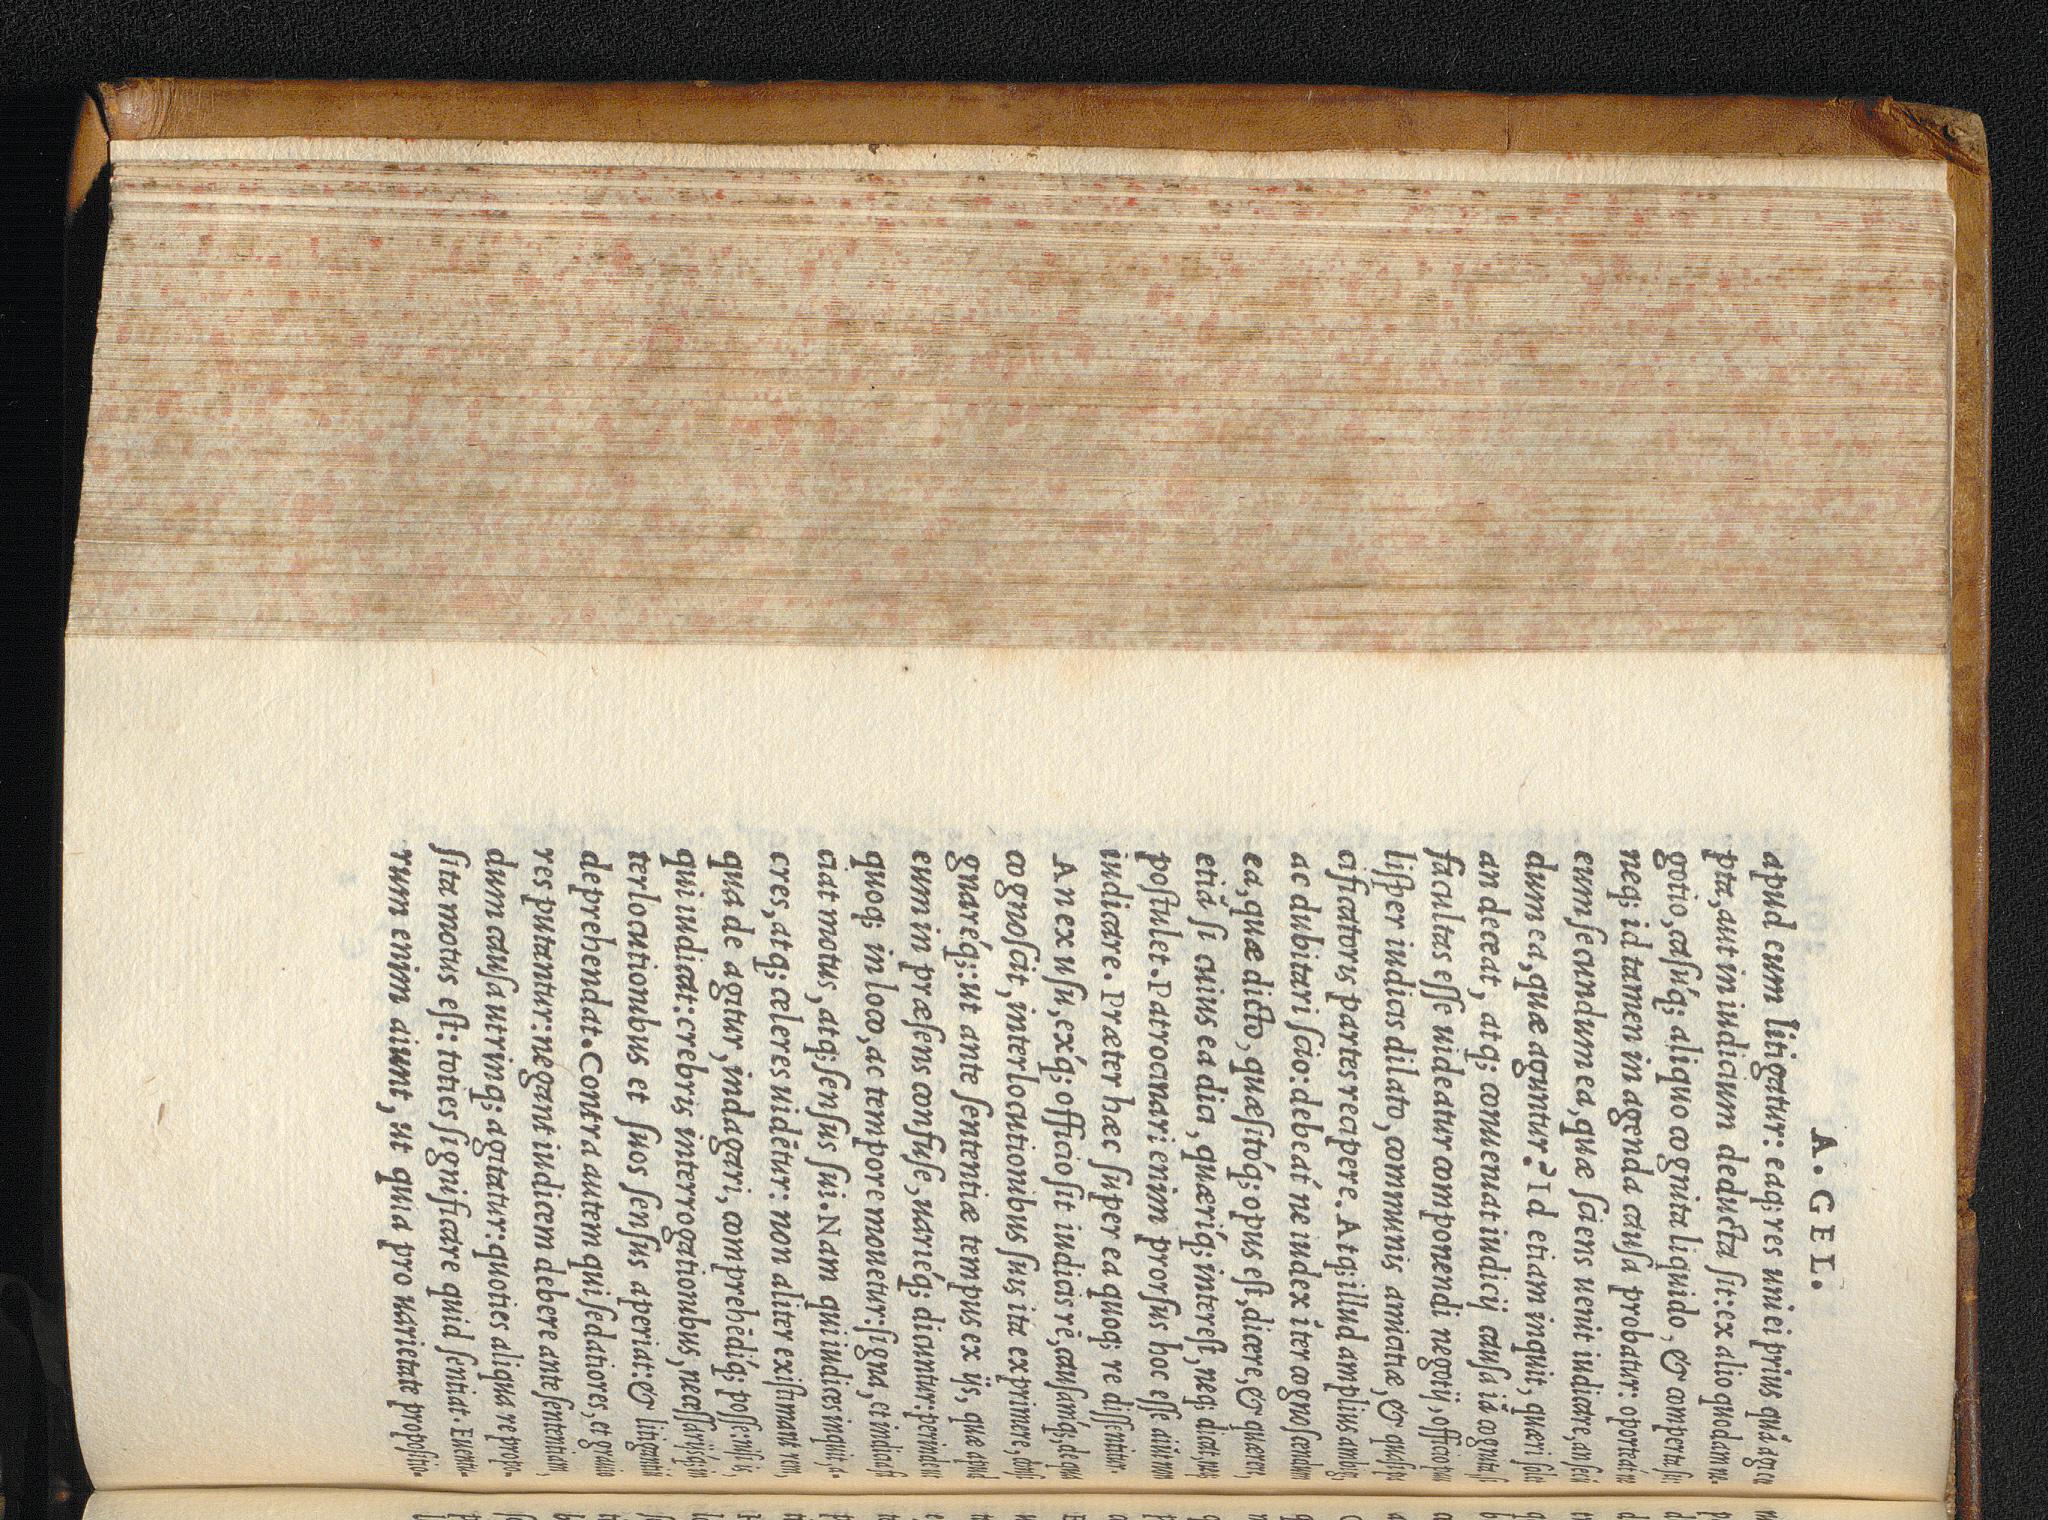 A. GEL.
apud eum litigatur: eaq; res uni ei prius quā agi cœ
pta, aut in iudicium deducta sit: ex alio quodam ne-
gotio, casuq́; aliquo cognita liquido, & comperta sit:
neq; id tamen in agenda causa probatur: oporteat ne
eum secundum ea, quæ sciens uenit iudicare, an secū
dum ea, quæ aguntur? Id etiam inquit, quæri solet
an deceat, atq; conueniat iudici causa iā cognita si
facultas esse uideatur componendi negotij, officio
lisper iudicis dilato, communis amicitiæ, &
cificatoris partes recipere. Atq; illud amplius
ac dubitari scio: debeat ne iudex īter cognoscendum
ea, quæ dicto, quæsitoq́; opus est, dicere, & quærere,
etiā si cuius ea dici, quæriq́; interest, neq; dicat, neq;
postulet. Patrocinari enim prorsus hoc esse aiūt non
iudicare. Præter hæc super ea quoq; re dissentitur.
An ex usu, exq́; officio sit iudicis rē, causamq́;, de qua
cognoscit, interlocutionibus suis ita exprimere,
gnareq́;: ut ante sententiæ tempus ex ijs, quæ apud
eum in præsens confuse, uarieq́; dicuntur: perinde ut
quoq; in loco, ac tempore mouetur: signa, et indicia
ciat motus, atq; sensus sui. Nam qui iudices inquit, a-
cres, atq; celeres uidētur: non aliter existimant rem,
qua de agitur, indagari, comprehēdiq́; posse: nisi is,
qui iudicat: crebris interrogationibus, necessarijsq́; in
terlocutionibus et suos sensus aperiat: & litigantiū
deprehendat. Contra autem qui sedatiores, et grauio
res putantur: negant iudicem debere ante sententiam,
dum causa utrinq; agitatur: quoties aliqua re propo-
sita motus est: toties significare quid sentiat. Euentu-
rum enim aiunt, ut quia pro uarietate propositio-